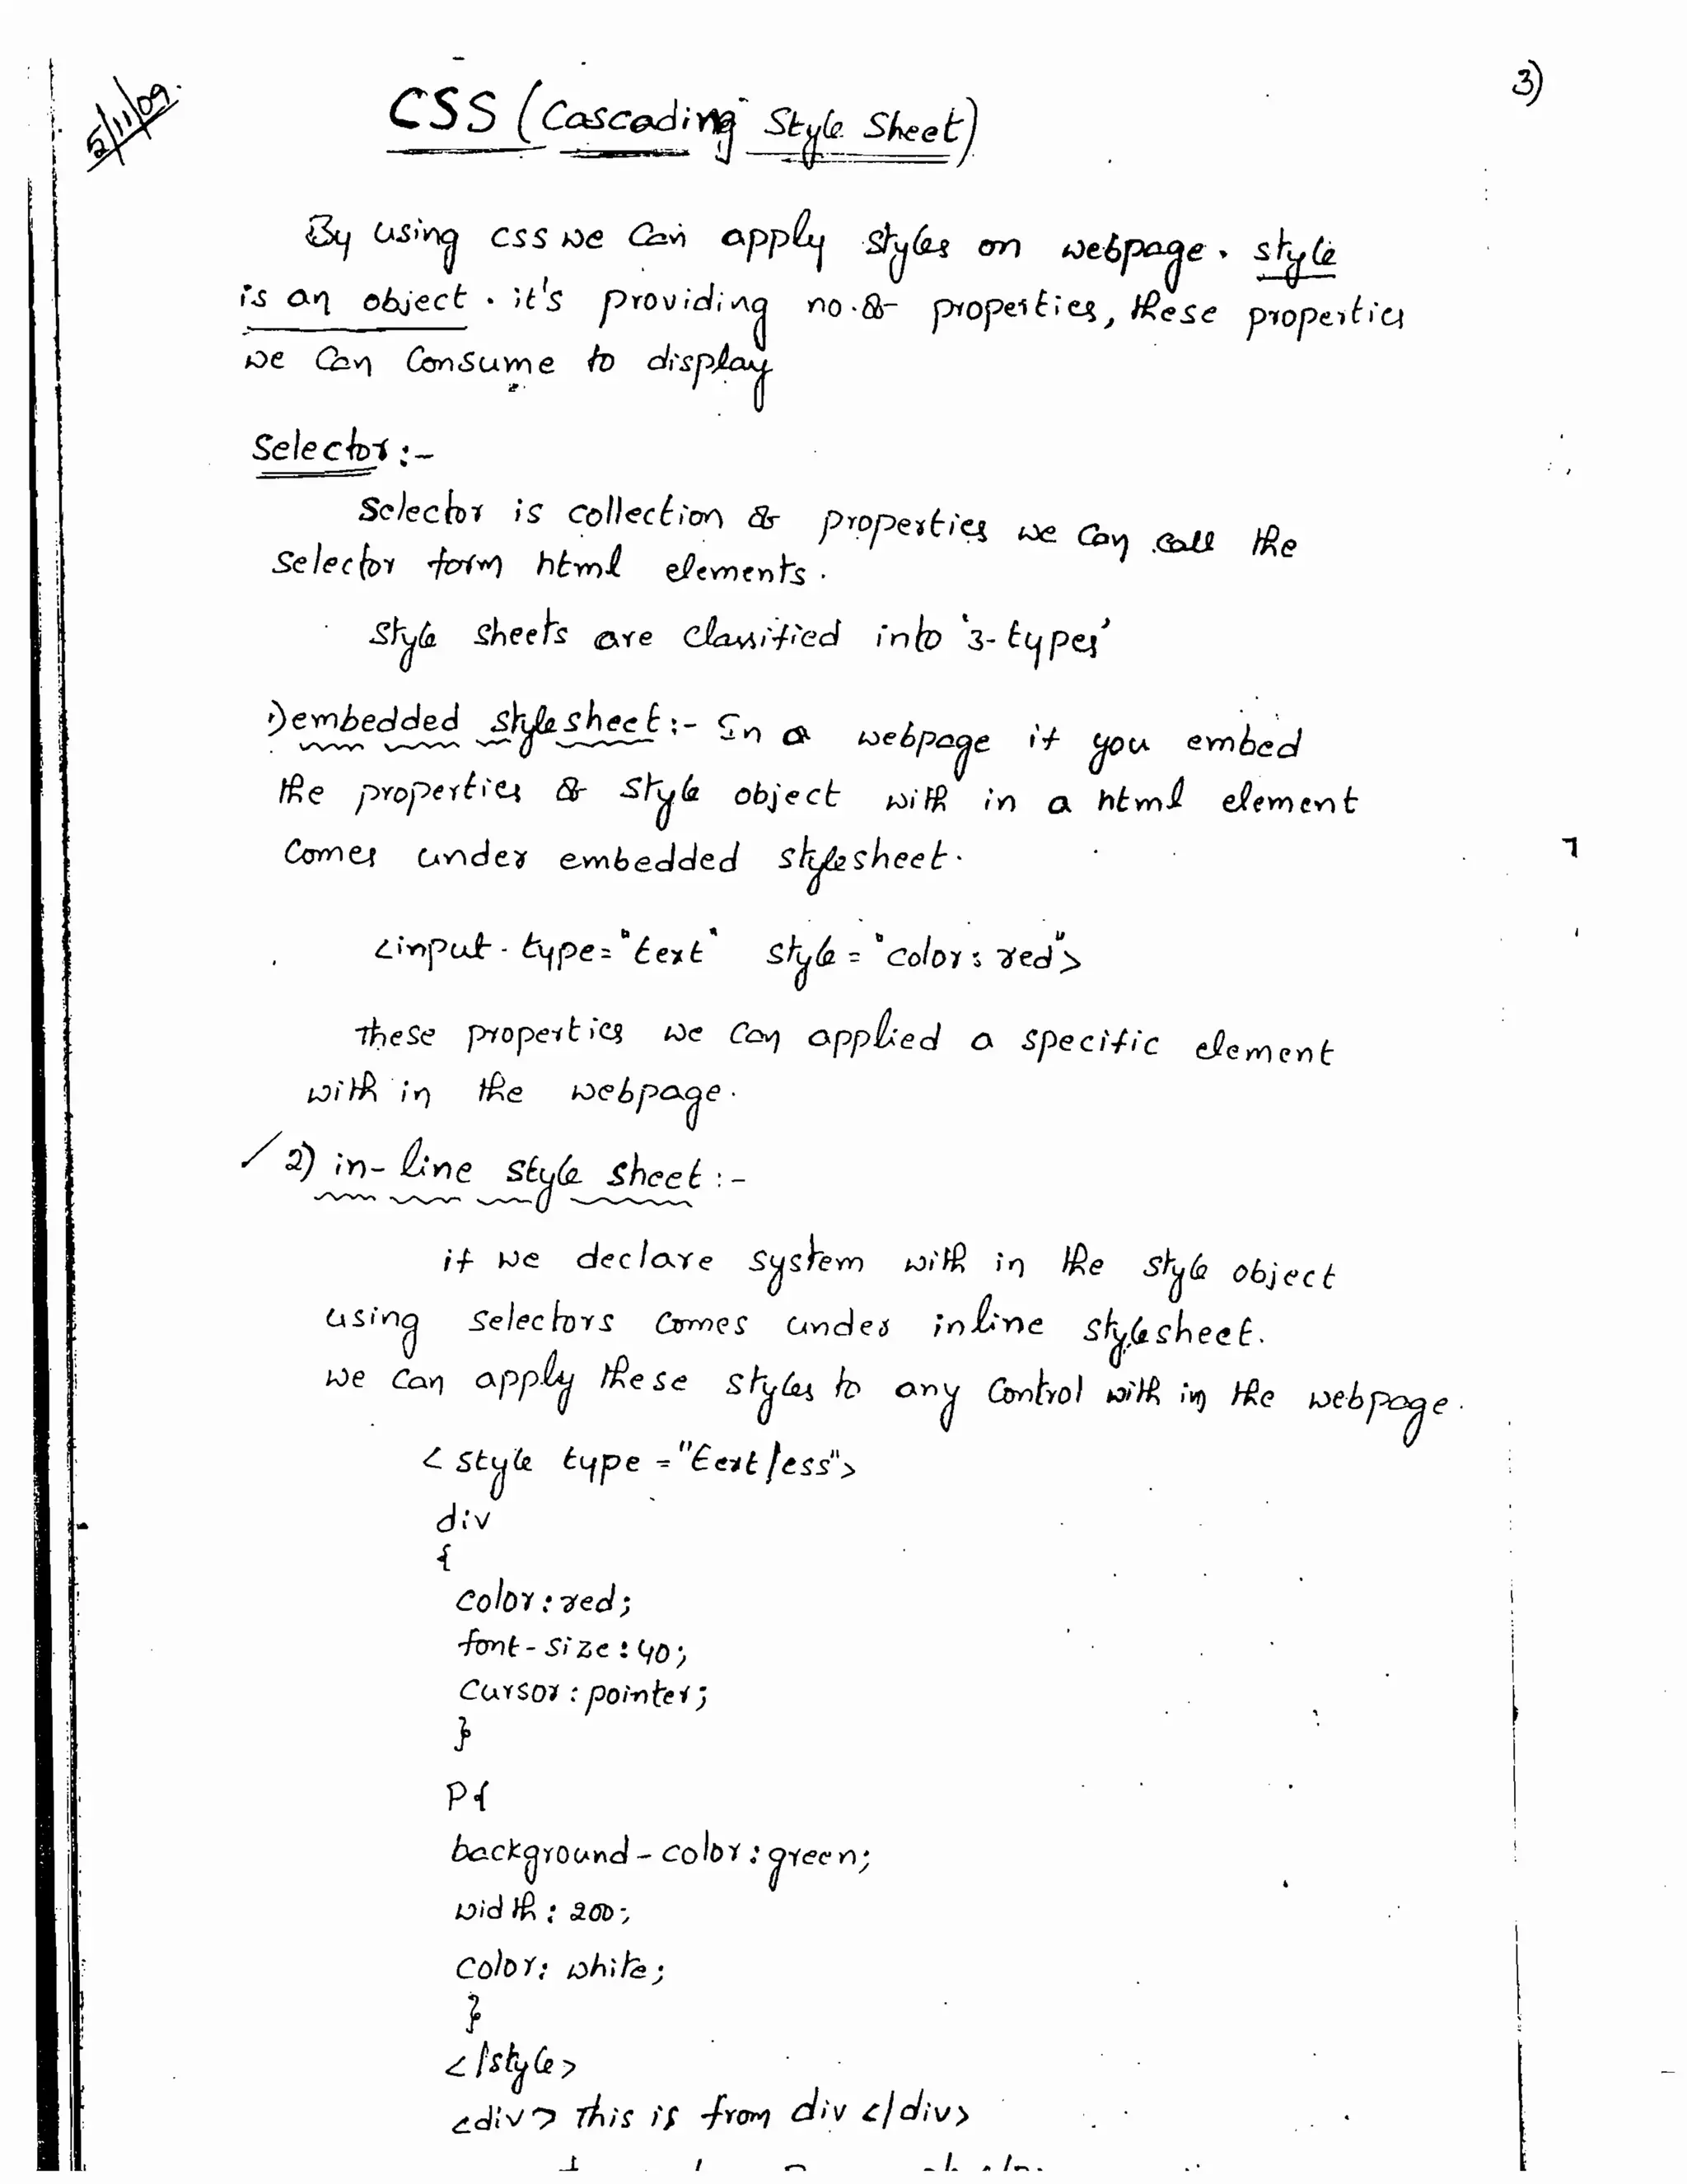 5/11/09.
3)
CSS (Cascading Style Sheet)
By using css we can apply styles on webpage. style
is an object. it's providing no.of properties, these properties
we can consume to display
Selector:-
Selector is collection of properties we can call the
selector form html elements.
Style sheets are classified into '3-types'
1) embedded stylesheet:- In a webpage if you embed
the properties of style object with in a html element
comes under embedded stylesheet.
<input type="text" style="color:red">
These properties we can applied a specific element
with in the webpage.
2) in-line style sheet:-
if we declare system with in the style object
using selectors comes under inline stylesheet.
we can apply these styles to any control with in the webpage.
<style type="text/css">
div
{
color:red;
font-size:40;
cursor:pointer;
}
P{
background-color:green;
width:200;
color:white;
}
</style>
<div> This is from div </div>